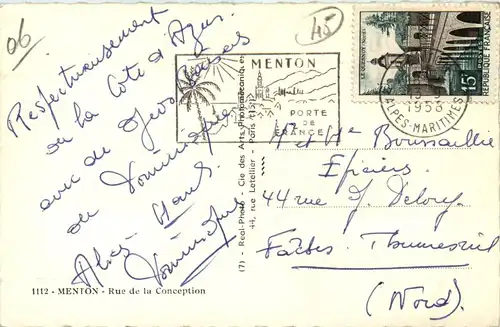 06
45
Respectueusement
de la Côte d'Azur
avec de gros baisers
de Dominique
Alice
Dominique
MENTON
PORTE
DE
FRANCE
LE QUESNOY (NORD)
15F
REPUBLIQUE FRANÇAISE
1958
ALPES-MARITIMES
(17) - Real-Photo - Cie des Arts Photomécaniques
44, rue Letellier - Paris (15e)
Mr et Me Boussaillie
Epiciers
44 rue J. Delory
Faches-Thumesnil
(Nord).
1112 - MENTON - Rue de la Conception